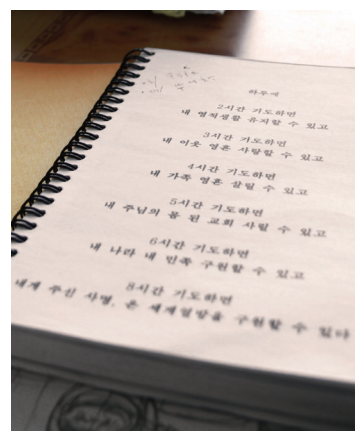 하루에
2시간 기도하면
내 영적생활 유지할 수 있고
3시간 기도하면
내 이웃 영혼 사랑할 수 있고
4시간 기도하면
내 가족 영혼 살릴 수 있고
5시간 기도하면
내 주님의 몸 된 교회 살릴 수 있고
6시간 기도하면
내 나라 내 민족 구원할 수 있고
8시간 기도하면
내게 주신 사명, 온 세계열방을 구원할 수 있다